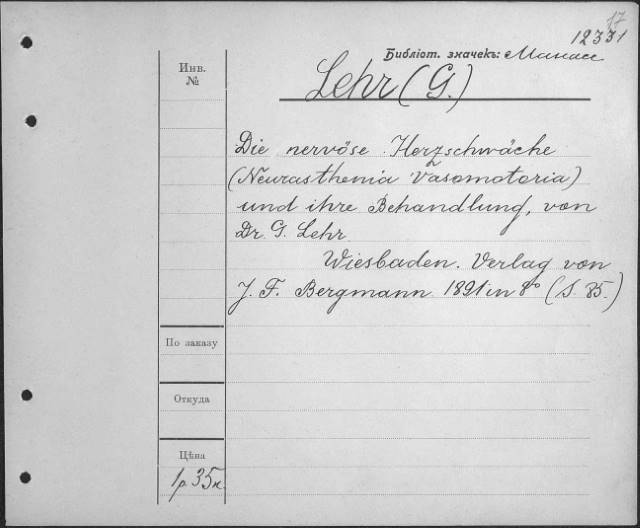 17
12331
Библіот. значекъ: Манасс
Инв.
№
Lehr (G.)
Die nervöse Herzschwäche
(Neurasthenia vasomotoria)
und ihre Behandlung, von
Dr. G. Lehr
Wiesbaden. Verlag von
J. F. Bergmann 1891 in 8° (S. 85.)
По заказу
Откуда
Цѣна
1р 35к